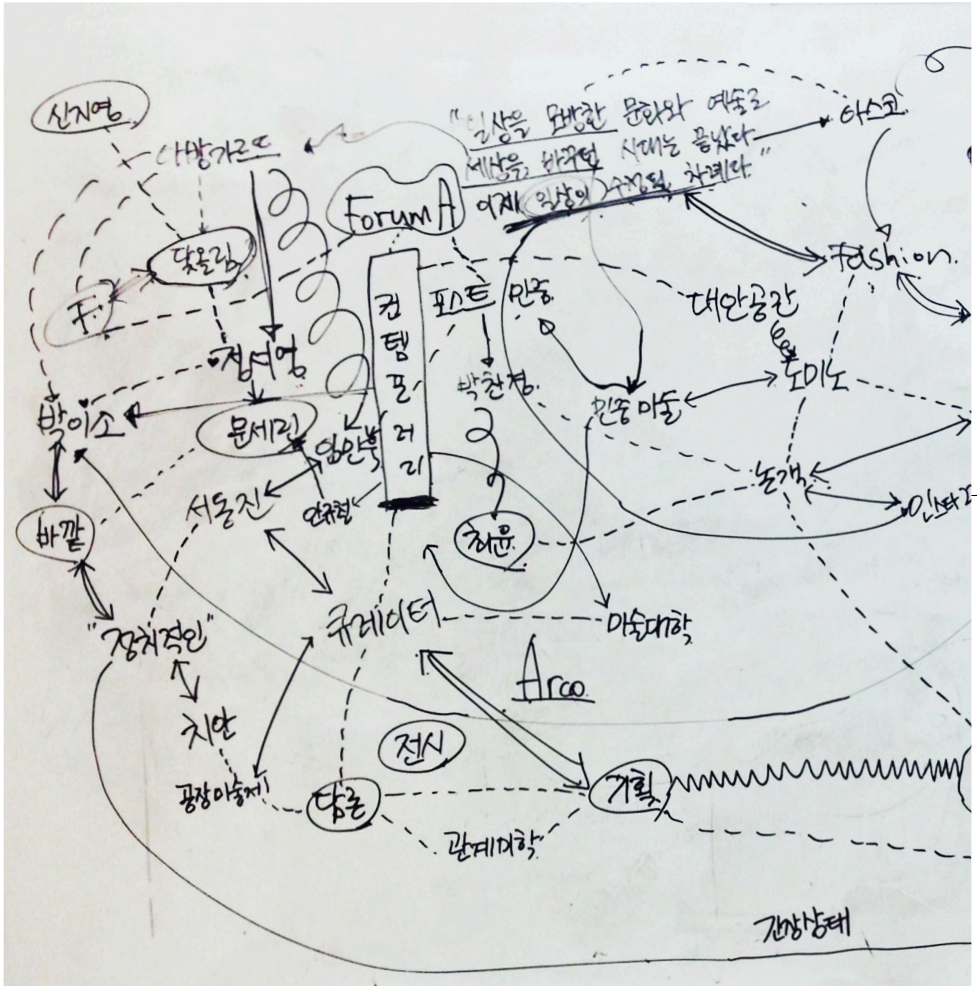 신지영
아방가르드
"일상을 모방한 문화와 예술로
세상을 바꾸던 시대는 끝났다.
이제 일상이 수정될 차례다."
아스코
Forum A
닻올림
F.
Fashion.
컨템포러리
포스트 민중
대안공간
정서영
박찬경.
도미노
박이소
문세린
임민욱
민중미술
안규철
논객
서동진
바깥
최윤.
인스타
큐레이터
미술대학
"정치적인"
Arco.
치안
전시
공장미술제
담론
기획
관계미학
긴장상태